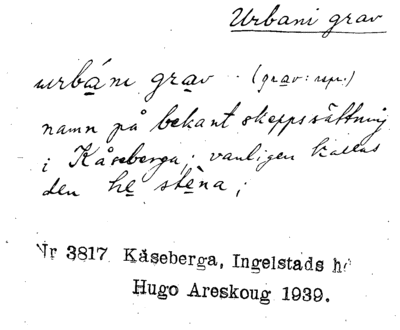 Urbani grav
urbáni grav (grav: repr.)
namn på bekant skeppssättning
i Kåseberga; vanligen kallas
den he stèna;
Nr 3817 Kåseberga, Ingelstads h
Hugo Areskoug 1939.